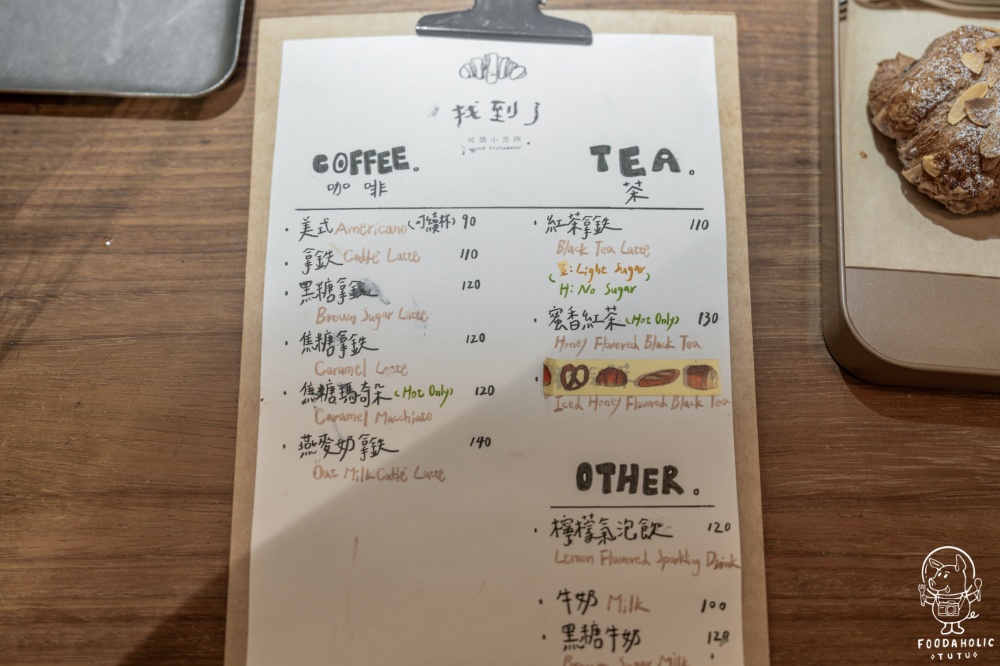 找到了
可頌小賣所
COFFEE.
咖啡
·美式 Americano (可續杯) 90
·拿鐵 Caffé Latte 110
·黑糖拿鐵 120
Brown Sugar Latte
·焦糖拿鐵 120
Caramel Latte
·焦糖瑪奇朵 (Hot Only) 120
Caramel Macchiato
·燕麥奶拿鐵 140
Oat Milk Caffé Latte
TEA.
茶
·紅茶拿鐵 110
Black Tea Latte
I: Light Sugar
H: No Sugar
·蜜香紅茶 (Hot Only) 130
Honey Flavored Black Tea
Iced Honey Flavored Black Tea
OTHER.
·檸檬氣泡飲 120
Lemon Flavored Sparkling Drink
·牛奶 Milk 100
·黑糖牛奶 120
Brown Sugar Milk
FOODAHOLIC
TUTU